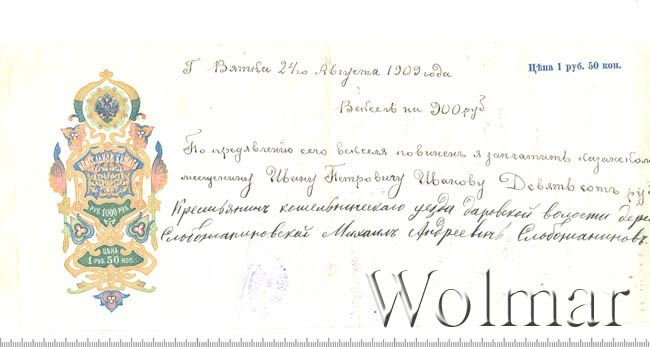 Г Вятка 24го Августа 1909 года
Цѣна 1 руб. 50 коп.
Вексель на 900 руб
По предявлению сего векселя повинен я заплатить казанском
мещанину Ивану Петровичу Иванову Девятьсот руб
Крестьянин котельнического уезда даровской волости дере
Слобожаниновской Михаил Андреевич Слобожанинов.
ВЕКСЕЛЬНАЯ БУМАГА
РУБ. 1000 РУБ.
ЦѢНА
1 РУБ. 50 КОП.
Wolmar